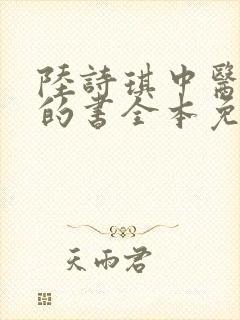 陸詩琪中醫
的書全本免
天雨君